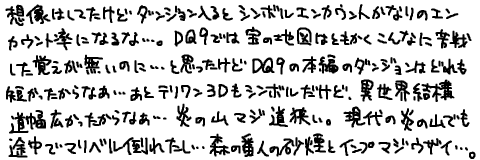 想像はしてたけどダンジョン入るとシンボルエンカウントかなりのエン
カウント率になるな…。DQ9では宝の地図はともかくこんなに苦戦
した覚えが無いのに…と思ったけどDQ9の本編のダンジョンはどれも
短かったからなあ…あとテリワン3Dもシンボルだけど、異世界結構
道幅広かったからなあ…炎の山マジ道狭い。現代の炎の山でも
途中でマリベル倒れたし…森の番人の砂煙とインプマジウザイ…。